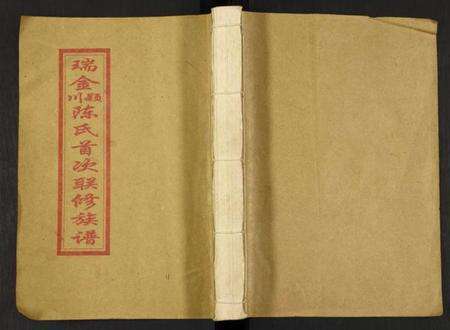 瑞金
川颖
陈氏首次联修族谱